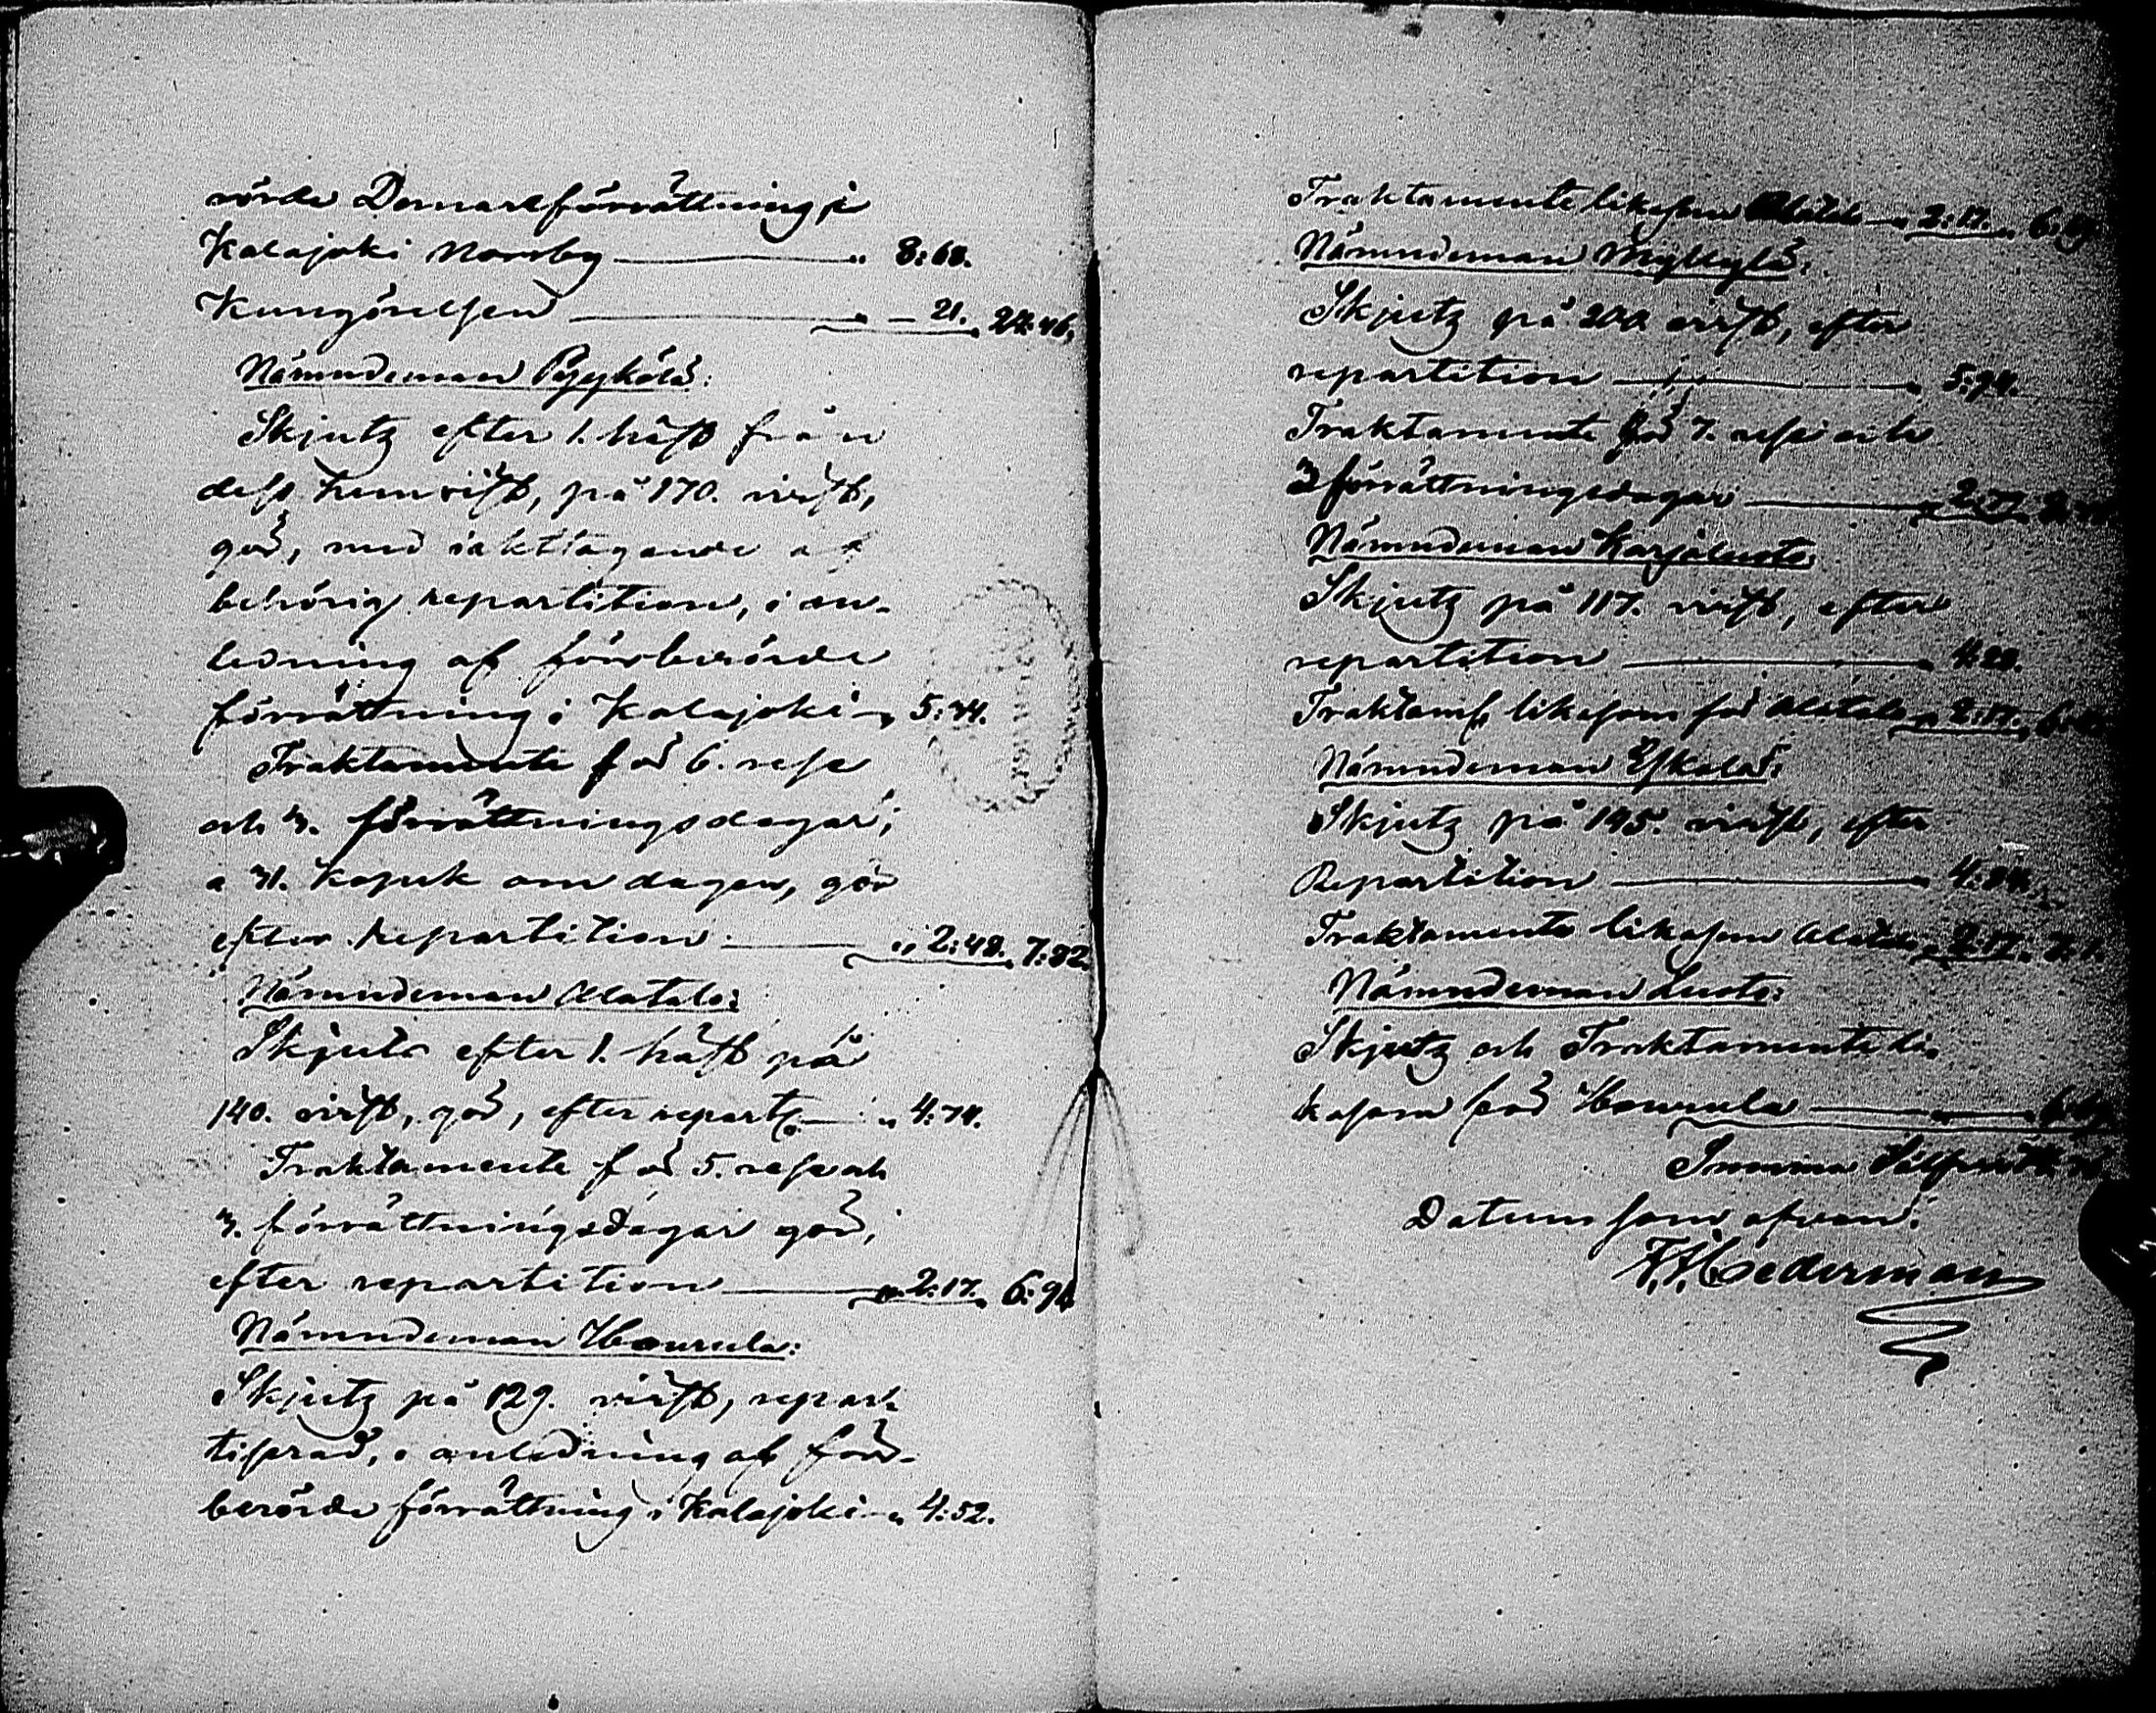 rörde Domareförrättning i
Kalajoki Norrby — „ 8:68.
Kungörelsen — „ — 21. 24:46.
Nämndeman Pyykölä:
Skjutz efter 1. häst från
dess hemvist, på 170. virst,
gör, med iakttagande af
behörig repartition, i an-
ledning af förberörde
förrättning i Kalajoki „ 5:44.
Traktamente för 6. rese
och 3. förrättningsdagar,
a 31. Kopek om dagen, gör
efter repartition — „ 2:48. 7:82.
Nämndeman Alatalo:
Skjuts efter 1. häst på
140. virst, gör, efter repart. — „ 4:74.
Traktamente för 5. rese och
3. förrättningsdagar gör,
efter repartition — „ 2:17. 6:91
Nämndeman Hourula:
Skjutz på 129. virst, repar-
tiserad, i anledning af för-
berörde förrättning i Kalajoki „ 4:52.
Traktamente likasom Alatalo „ 2:17. 6:69
Nämndeman Myllylä:
Skjutz på 200 virst, efter
repartition — „ 5:94.
Traktamente för 7. rese och
3 förrättningsdagar — „ 2:79.
Nämndeman Karjaluoto
Skjutz på 117. virst, efter
repartition — „ 4:28.
Traktamte likasom för Alatalo „ 2:17.
Nämndeman Eskola:
Skjutz på 145. virst, efter
Repartition — „ 4:84.
Traktamente likasom Alatalo „ 2:17.
Nämndeman Luoto:
Skjutz och Traktamente li-
kasom för Hourula — „ 6:69
Summa Silfver
Datum som ofvan.
Cederman